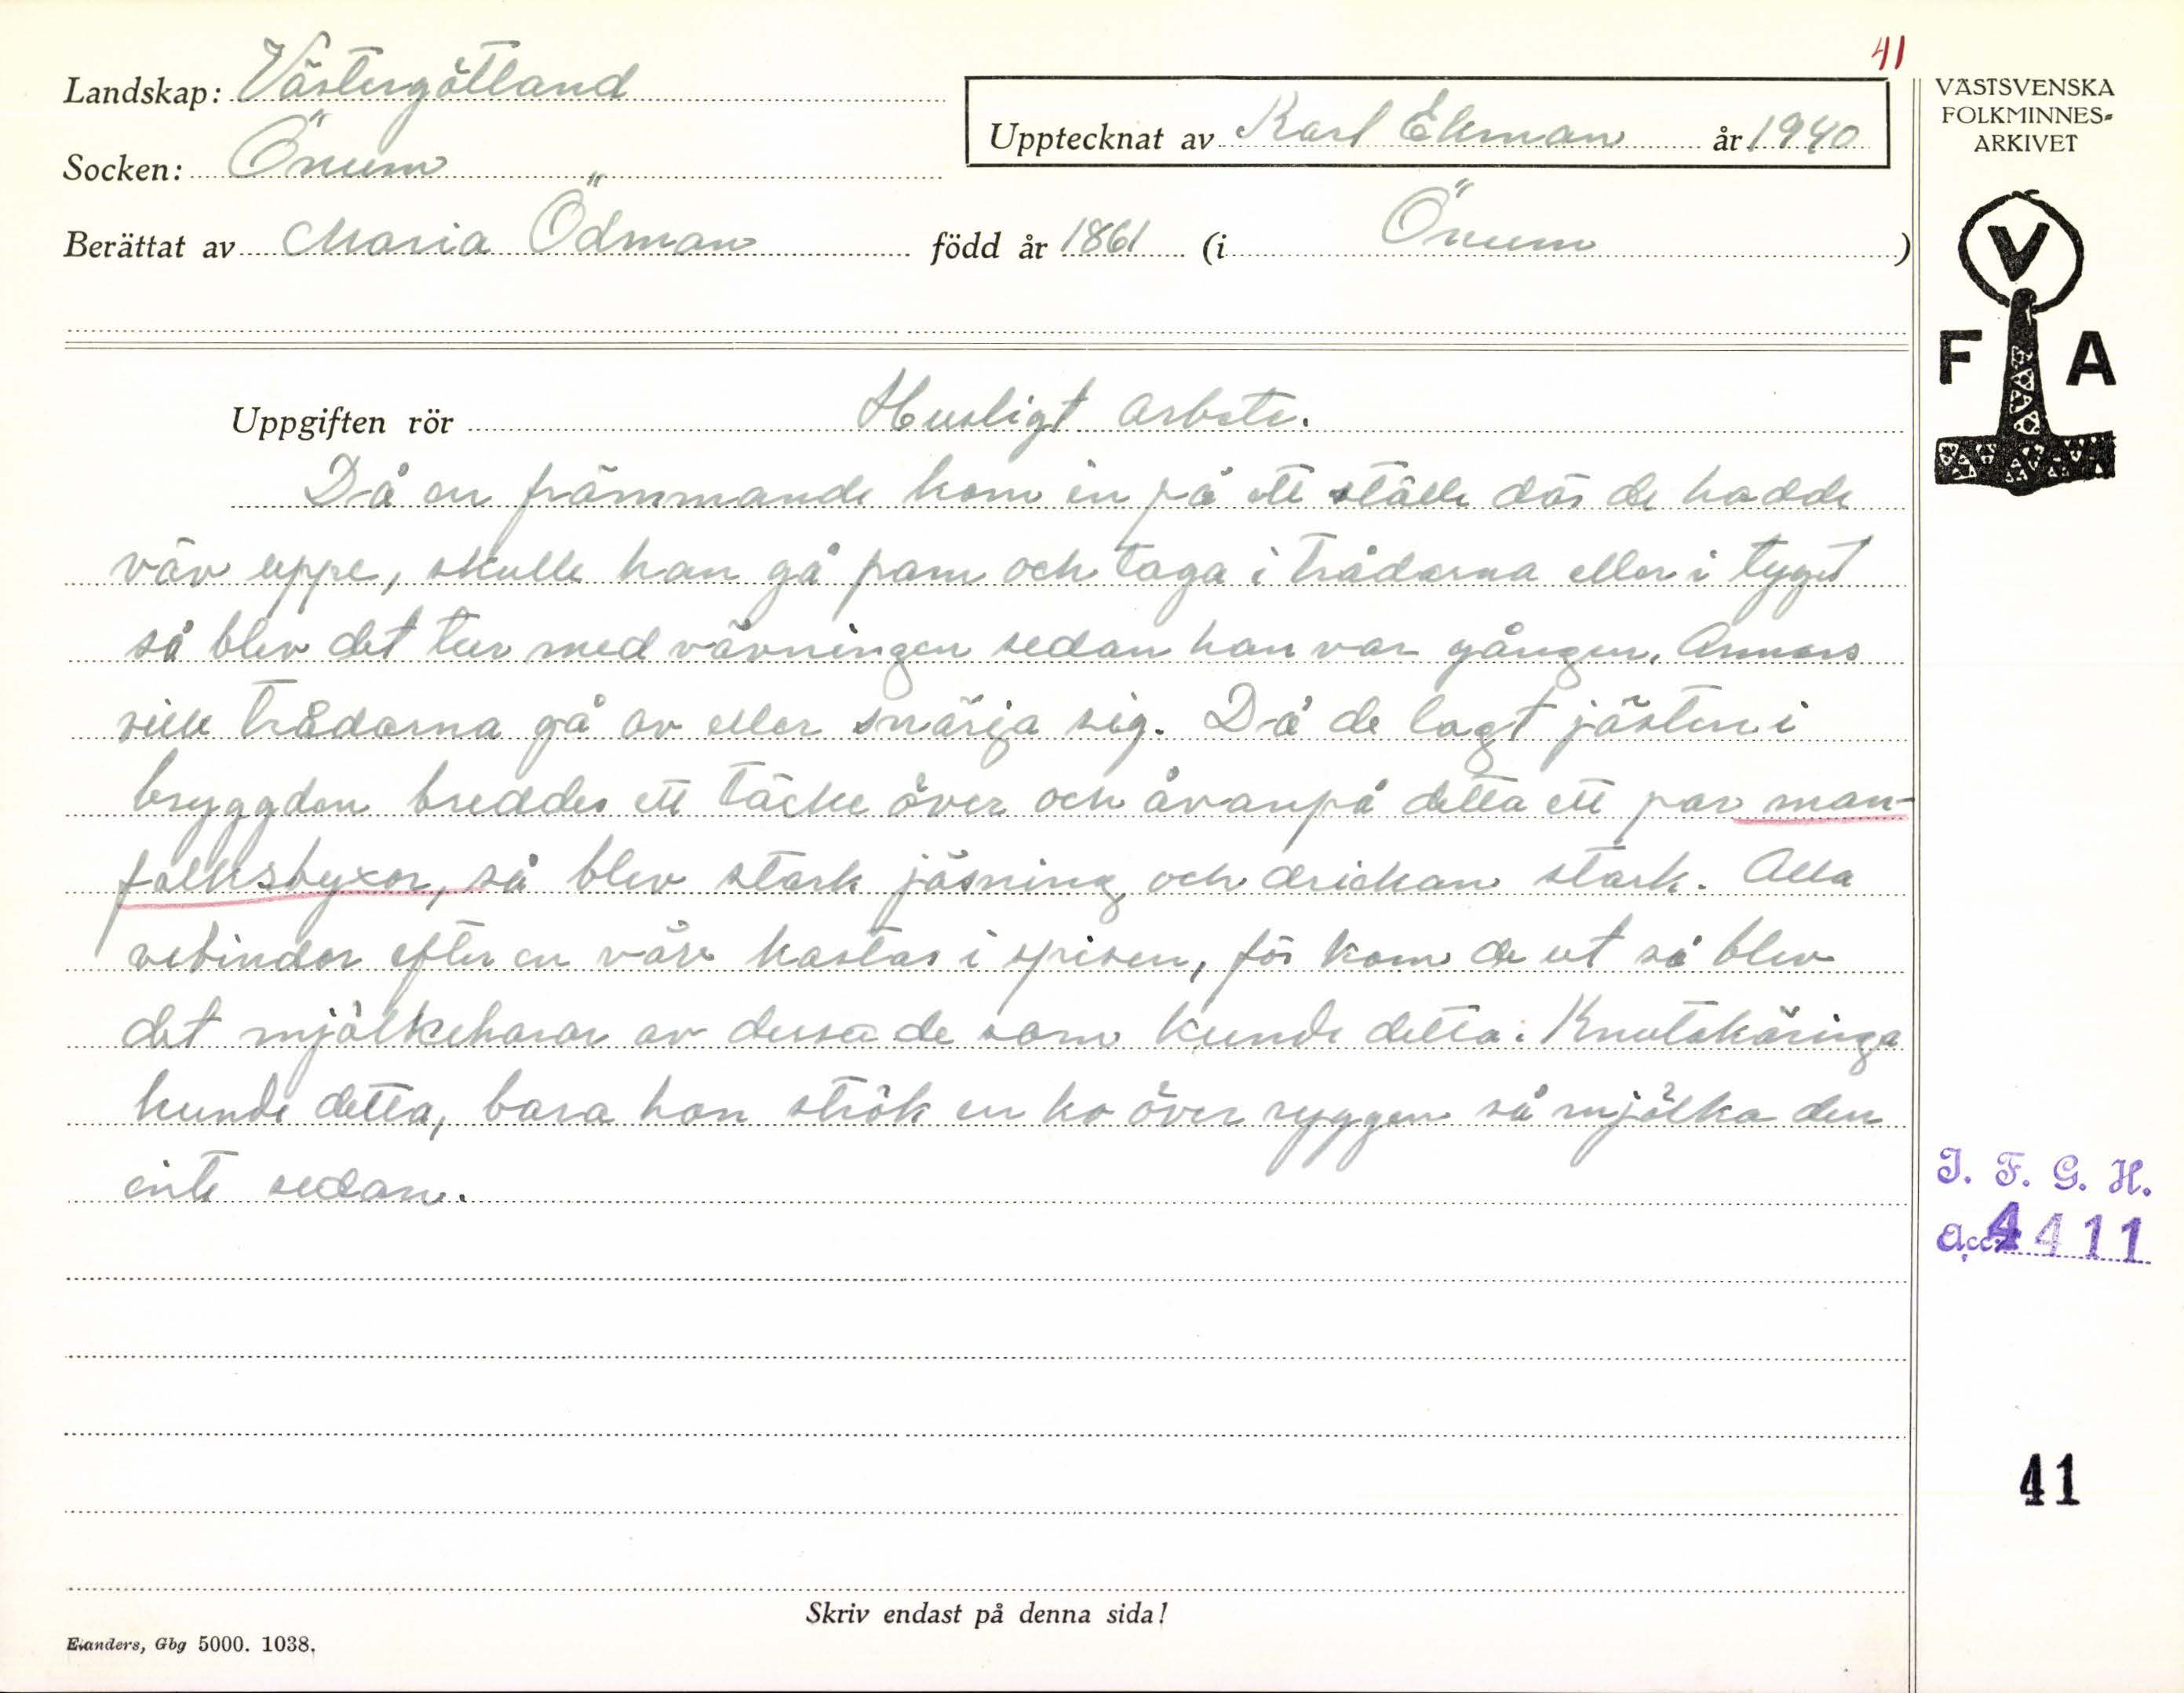 41
Landskap: Västergötland
Upptecknat av Karl Ekman år 1940
Socken: Önum
Berättat av Maria Ödman född år 1861 (i Önum)
VÄSTSVENSKA
FOLKMINNES=
ARKIVET
V
F A
Uppgiften rör Husligt arbete.
Då en främmande kom in på ett ställe där de hadde
väv uppe, skulle han gå fram och taga i trådarna eller i tyget
så blev det tur med vävningen sedan han var gången. Annars
ville trådarna gå av eller snärja sig. Då de lagt jästen i
bryggden breddes ett täcke över och åvanpå detta ett par man-
folksbyxor, så blev stark jäsning och drickan stark. Alla
vebindor efter en väv kastas i spisen, för kom de ut så blev
det mjölkeharar av dessa de som kunde detta. Knutakäringa
kunde detta, bara hon strök en ko över ryggen så mjölka den
inte sedan.
I. F. G. H.
Acc. 4411
41
Skriv endast på denna sida!
Elanders, Gbg 5000. 1038.